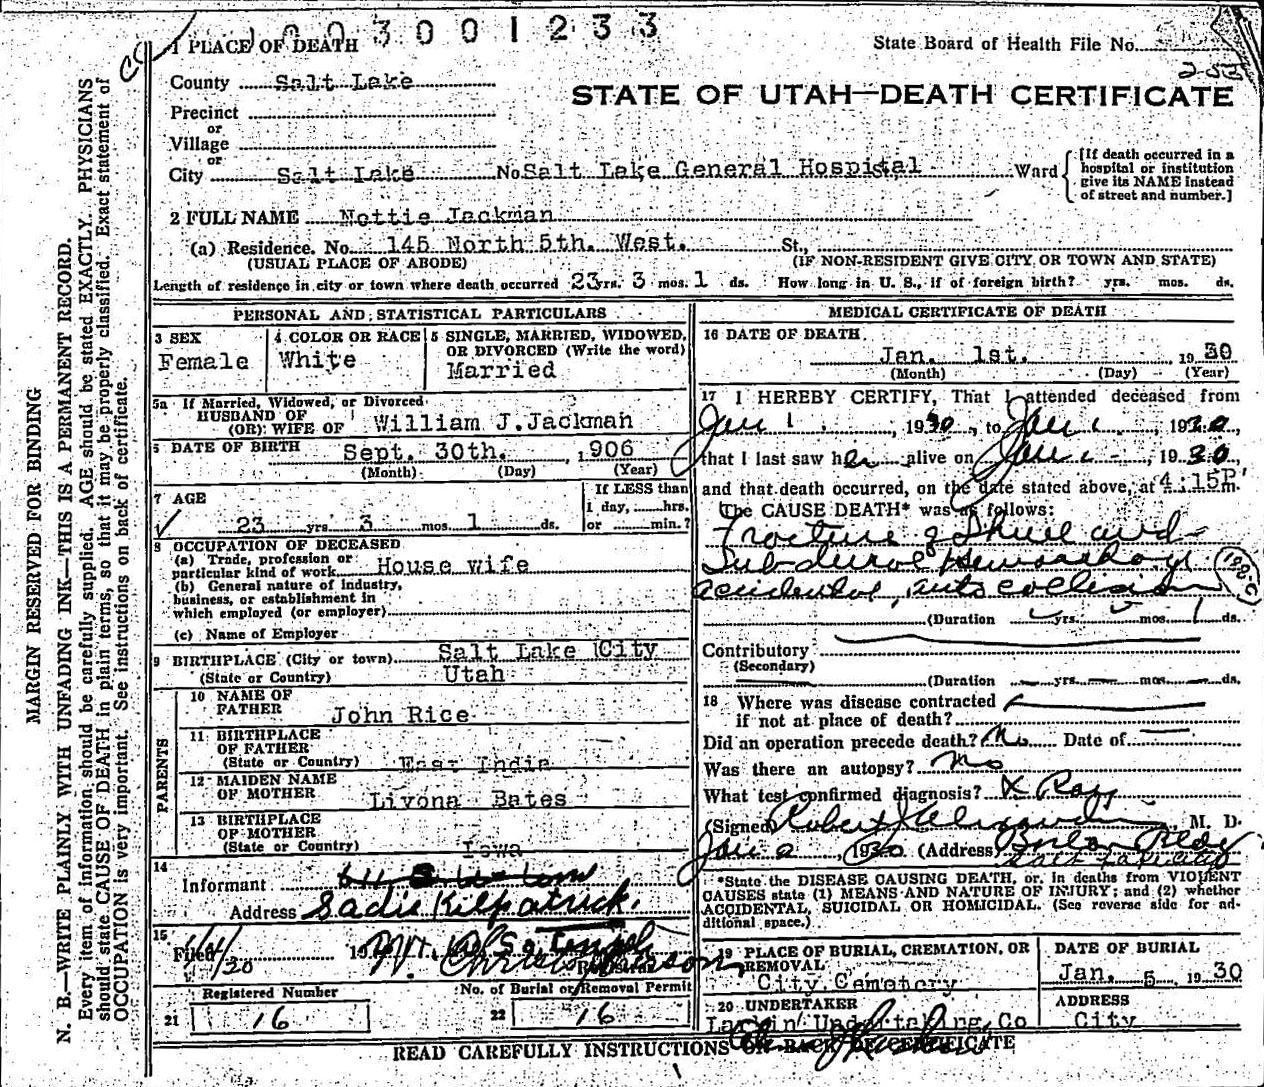 003001233
1 PLACE OF DEATH
State Board of Health File No.
County Salt Lake
STATE OF UTAH—DEATH CERTIFICATE
Precinct
or
Village
or
City Salt Lake No. Salt Lake General Hospital Ward
[If death occurred in a
hospital or institution
give its NAME instead
of street and number.]
2 FULL NAME Nettie Jackman
(a) Residence. No. 145 North 5th. West. St.,
(USUAL PLACE OF ABODE) (IF NON-RESIDENT GIVE CITY OR TOWN AND STATE)
Length of residence in city or town where death occurred 23 yrs. 3 mos. 1 ds. How long in U. S., if of foreign birth? yrs. mos. ds.
PERSONAL AND STATISTICAL PARTICULARS
3 SEX
Female
4 COLOR OR RACE
White
5 SINGLE, MARRIED, WIDOWED,
OR DIVORCED (Write the word)
Married
5a If Married, Widowed, or Divorced
HUSBAND OF
(OR) WIFE OF William J.Jackman
6 DATE OF BIRTH Sept. 30th. , 1906
(Month) (Day) (Year)
7 AGE
23 yrs 3 mos. 1 ds.
If LESS than
1 day, hrs.
or min.?
8 OCCUPATION OF DECEASED
(a) Trade, profession or
particular kind of work House wife
(b) General nature of industry,
business, or establishment in
which employed (or employer)
(c) Name of Employer
9 BIRTHPLACE (City or town) Salt Lake City
(State or Country) Utah
PARENTS
10 NAME OF
FATHER John Rice
11 BIRTHPLACE
OF FATHER
(State or Country) East India
12 MAIDEN NAME
OF MOTHER Livona Bates
13 BIRTHPLACE
OF MOTHER
(State or Country) Iowa
14
Informant
Address Sadie Kilpatrick.
15
Filed 1/4/30 19
Registrar
Registered Number
21 16
No. of Burial or Removal Permit
22 16
MEDICAL CERTIFICATE OF DEATH
16 DATE OF DEATH
Jan. 1st. , 1930
(Month) (Day) (Year)
17 I HEREBY CERTIFY, That I attended deceased from
Jan 1 , 1930, to Jan 1 , 1930,
that I last saw her alive on Jan 1 , 1930,
and that death occurred, on the date stated above, at 4:15P m.
The CAUSE DEATH* was as follows:
Fracture of Skull and
Subdural Hemorrhage
accidental, auto collision
(Duration yrs. mos. 1 ds.
Contributory
(Secondary)
(Duration yrs. mos. ds.
18 Where was disease contracted
if not at place of death?
Did an operation precede death? No Date of
Was there an autopsy? No
What test confirmed diagnosis? X Ray
(Signed) Robert M. D.
Jan 2 , 1930 (Address) Boston Bldg
Salt Lake City
*State the DISEASE CAUSING DEATH, or, in deaths from VIOLENT
CAUSES state (1) MEANS AND NATURE OF INJURY; and (2) whether
ACCIDENTAL, SUICIDAL OR HOMICIDAL. (See reverse side for ad-
ditional space.)
19 PLACE OF BURIAL, CREMATION, OR
REMOVAL
City Cemetery
DATE OF BURIAL
Jan. 5 1930
20 UNDERTAKER
Larkin Undertaking Co
ADDRESS
City
READ CAREFULLY INSTRUCTIONS ON BACK OF CERTIFICATE
MARGIN RESERVED FOR BINDING
N. B.—WRITE PLAINLY WITH UNFADING INK—THIS IS A PERMANENT RECORD.
Every item of information should be carefully supplied. AGE should be stated EXACTLY. PHYSICIANS
should state CAUSE OF DEATH in plain terms, so that it may be properly classified. Exact statement of
OCCUPATION is very important. See instructions on back of certificate.